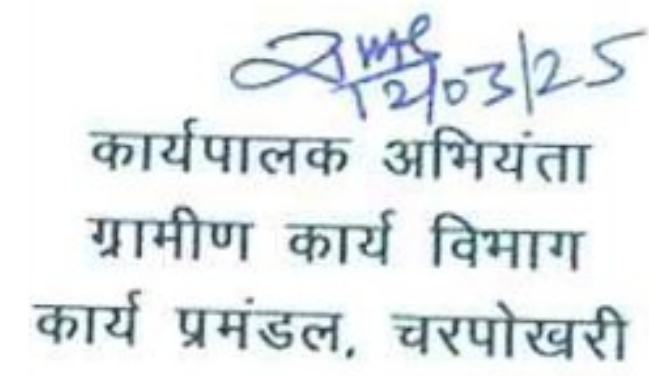 12/03/25
कार्यपालक अभियंता
ग्रामीण कार्य विभाग
कार्य प्रमंडल, चरपोखरी